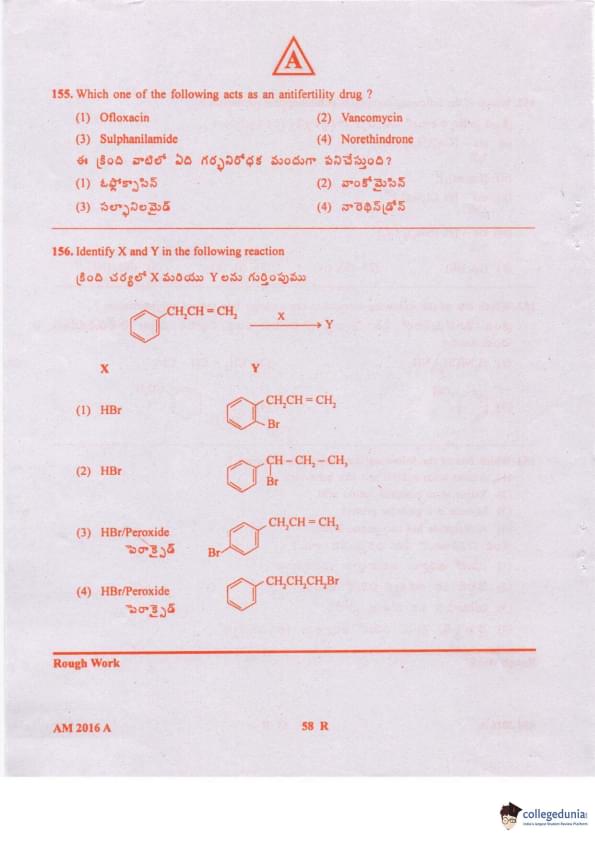 A
155. Which one of the following acts as an antifertility drug ?
(1) Ofloxacin (2) Vancomycin
(3) Sulphanilamide (4) Norethindrone
ఈ క్రింది వాటిలో ఏది గర్భనిరోధక మందుగా పనిచేస్తుంది?
(1) ఓఫ్లోక్సాసిన్ (2) వాంకోమైసిన్
(3) సల్ఫానిలమైడ్ (4) నారెథిన్‌డ్రోన్
156. Identify X and Y in the following reaction
క్రింది చర్యలో X మరియు Y లను గుర్తింపుము
CH₂CH = CH₂ X Y
X Y
(1) HBr CH₂CH = CH₂
Br
(2) HBr CH – CH₂ – CH₃
Br
(3) HBr/Peroxide CH₂CH = CH₂
పెరాక్సైడ్ Br
(4) HBr/Peroxide CH₂CH₂CH₂Br
పెరాక్సైడ్
Rough Work
AM 2016 A 58 R
collegedunia
India's largest Student Review Platform